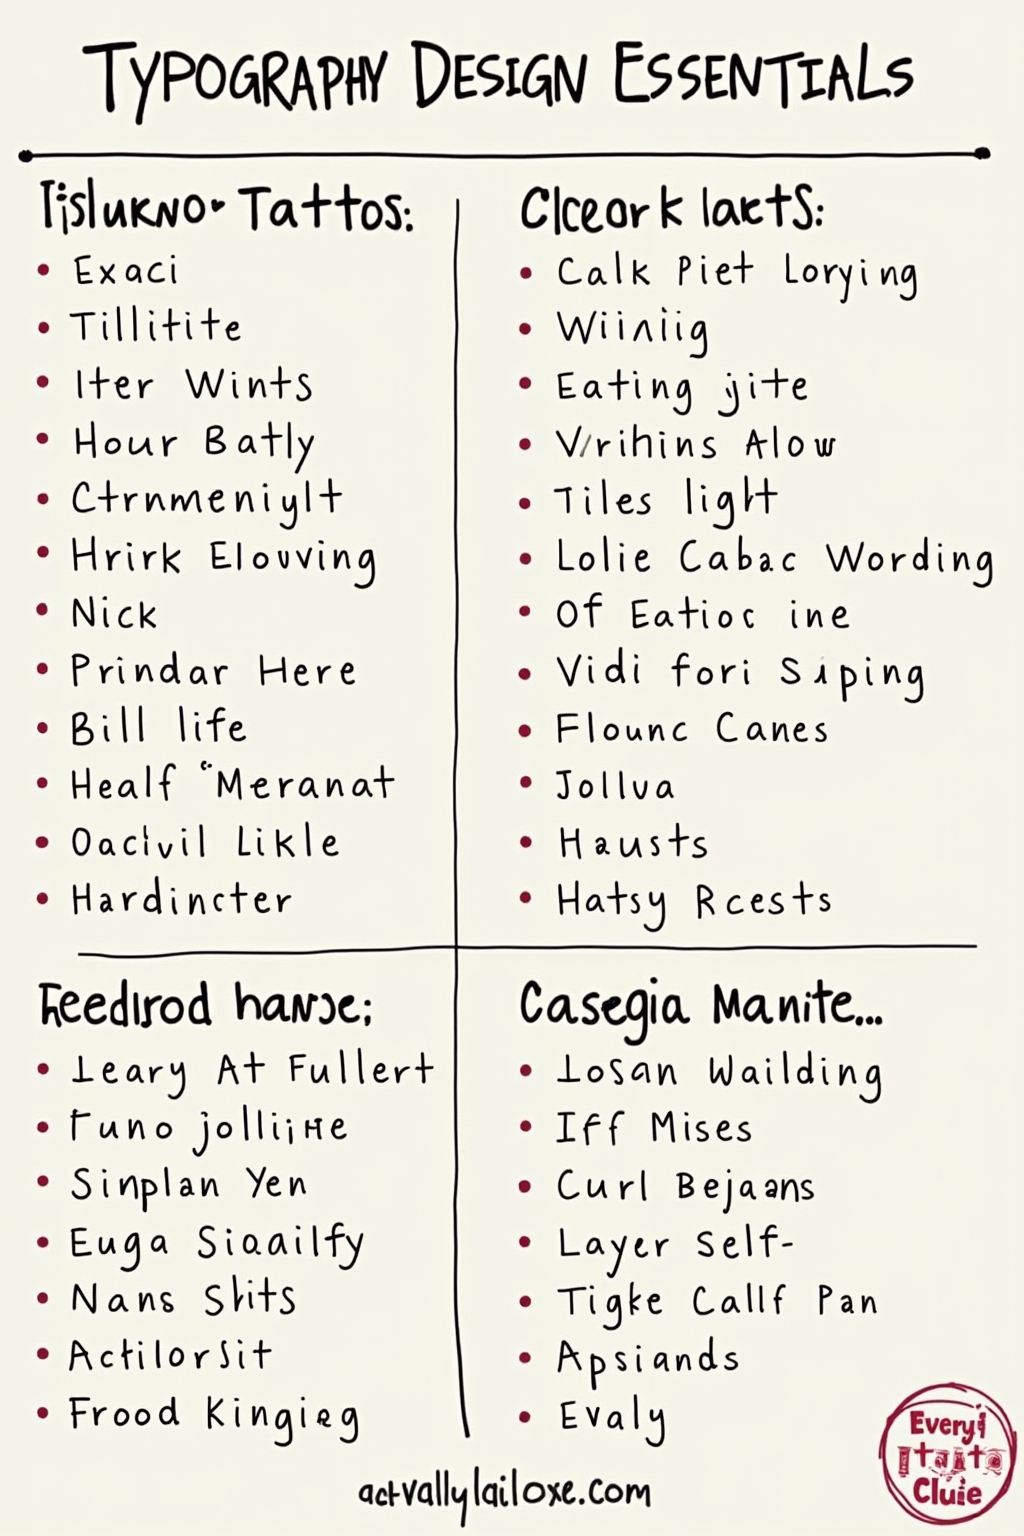 TYPOGRAPHY DESIGN ESSENTIALS
Tattos:
Exaci
Tillitite
Iter Wints
Hour Batly
Ctrnmeniylt
Hrirk Elouving
Nick
Prindar Here
Bill life
Healf “Meranat
Oacivil Likle
Hardincter
Clceork lakts:
Calk Piet Lorying
Wiiniig
Eating jite
Vrihins Alow
Tiles light
Lolie Cabac Wording
Of Eatioc ine
Vidi fori Siping
Flounc Canes
Jollva
Hausts
Hatsy Rcests
Feedirod hanse;
Leary At Fullert
Funo jolliine
Sinplan Yen
Euga Siaailfy
Nans Shits
Actilorsit
Frood Kingieg
Casegia Manite...
Losan Wailding
Iff Mises
Curl Bejaans
Layer Self-
Tigke Callf Pan
Apsiands
Evaly
actvallylailoxe.com
Every
Cluie